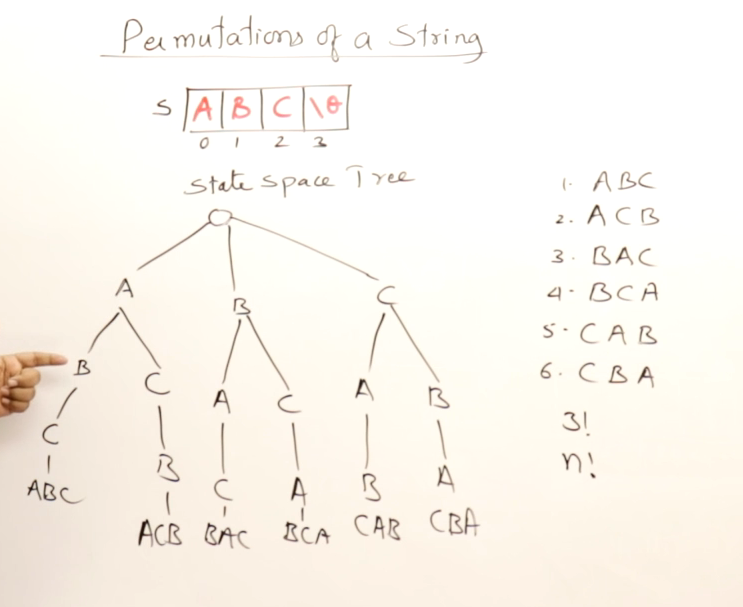 Permutations of a String
S A B C \0
0 1 2 3
State Space Tree
A B C
B C A C A B
C B C A B A
ABC ACB BAC BCA CAB CBA
1. ABC
2. ACB
3. BAC
4. BCA
5. CAB
6. CBA
3!
n!